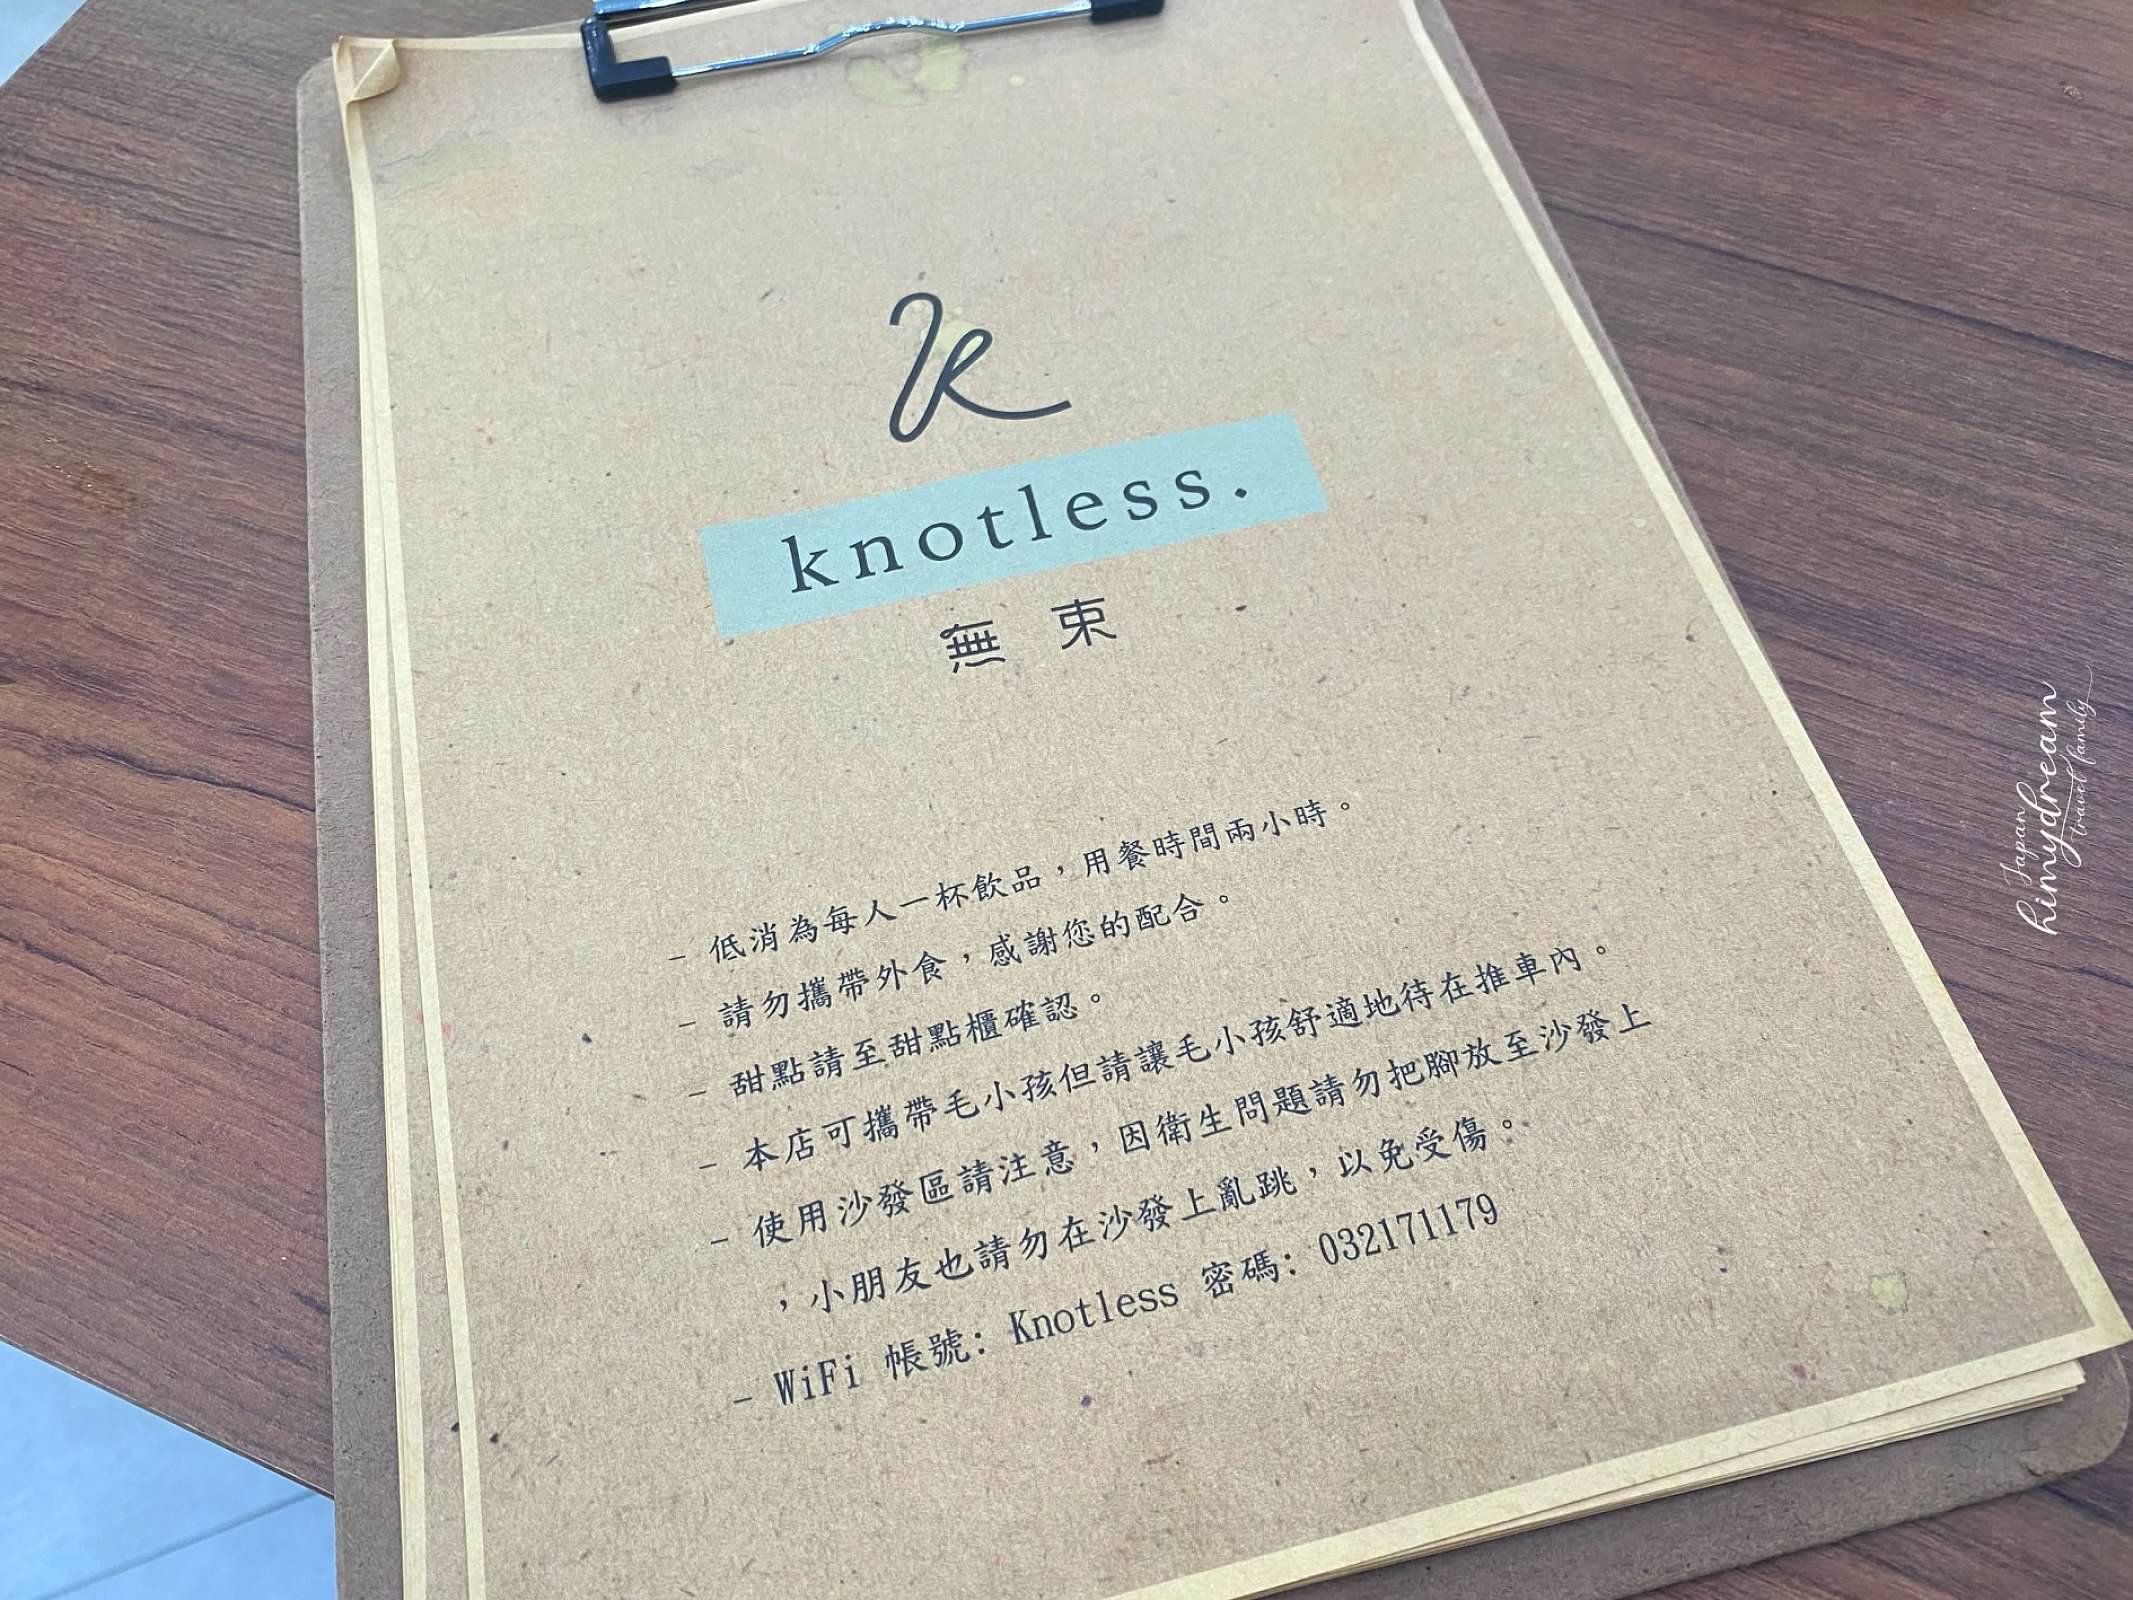 k
knotless.
無束
- 低消為每人一杯飲品，用餐時間兩小時。
- 請勿攜帶外食，感謝您的配合。
- 甜點請至甜點櫃確認。
- 本店可攜帶毛小孩但請讓毛小孩舒適地待在推車內。
- 使用沙發區請注意，因衛生問題請勿把腳放至沙發上
，小朋友也請勿在沙發上亂跳，以免受傷。
- WiFi 帳號: Knotless 密碼: 032171179
Japan
himydream
travel family